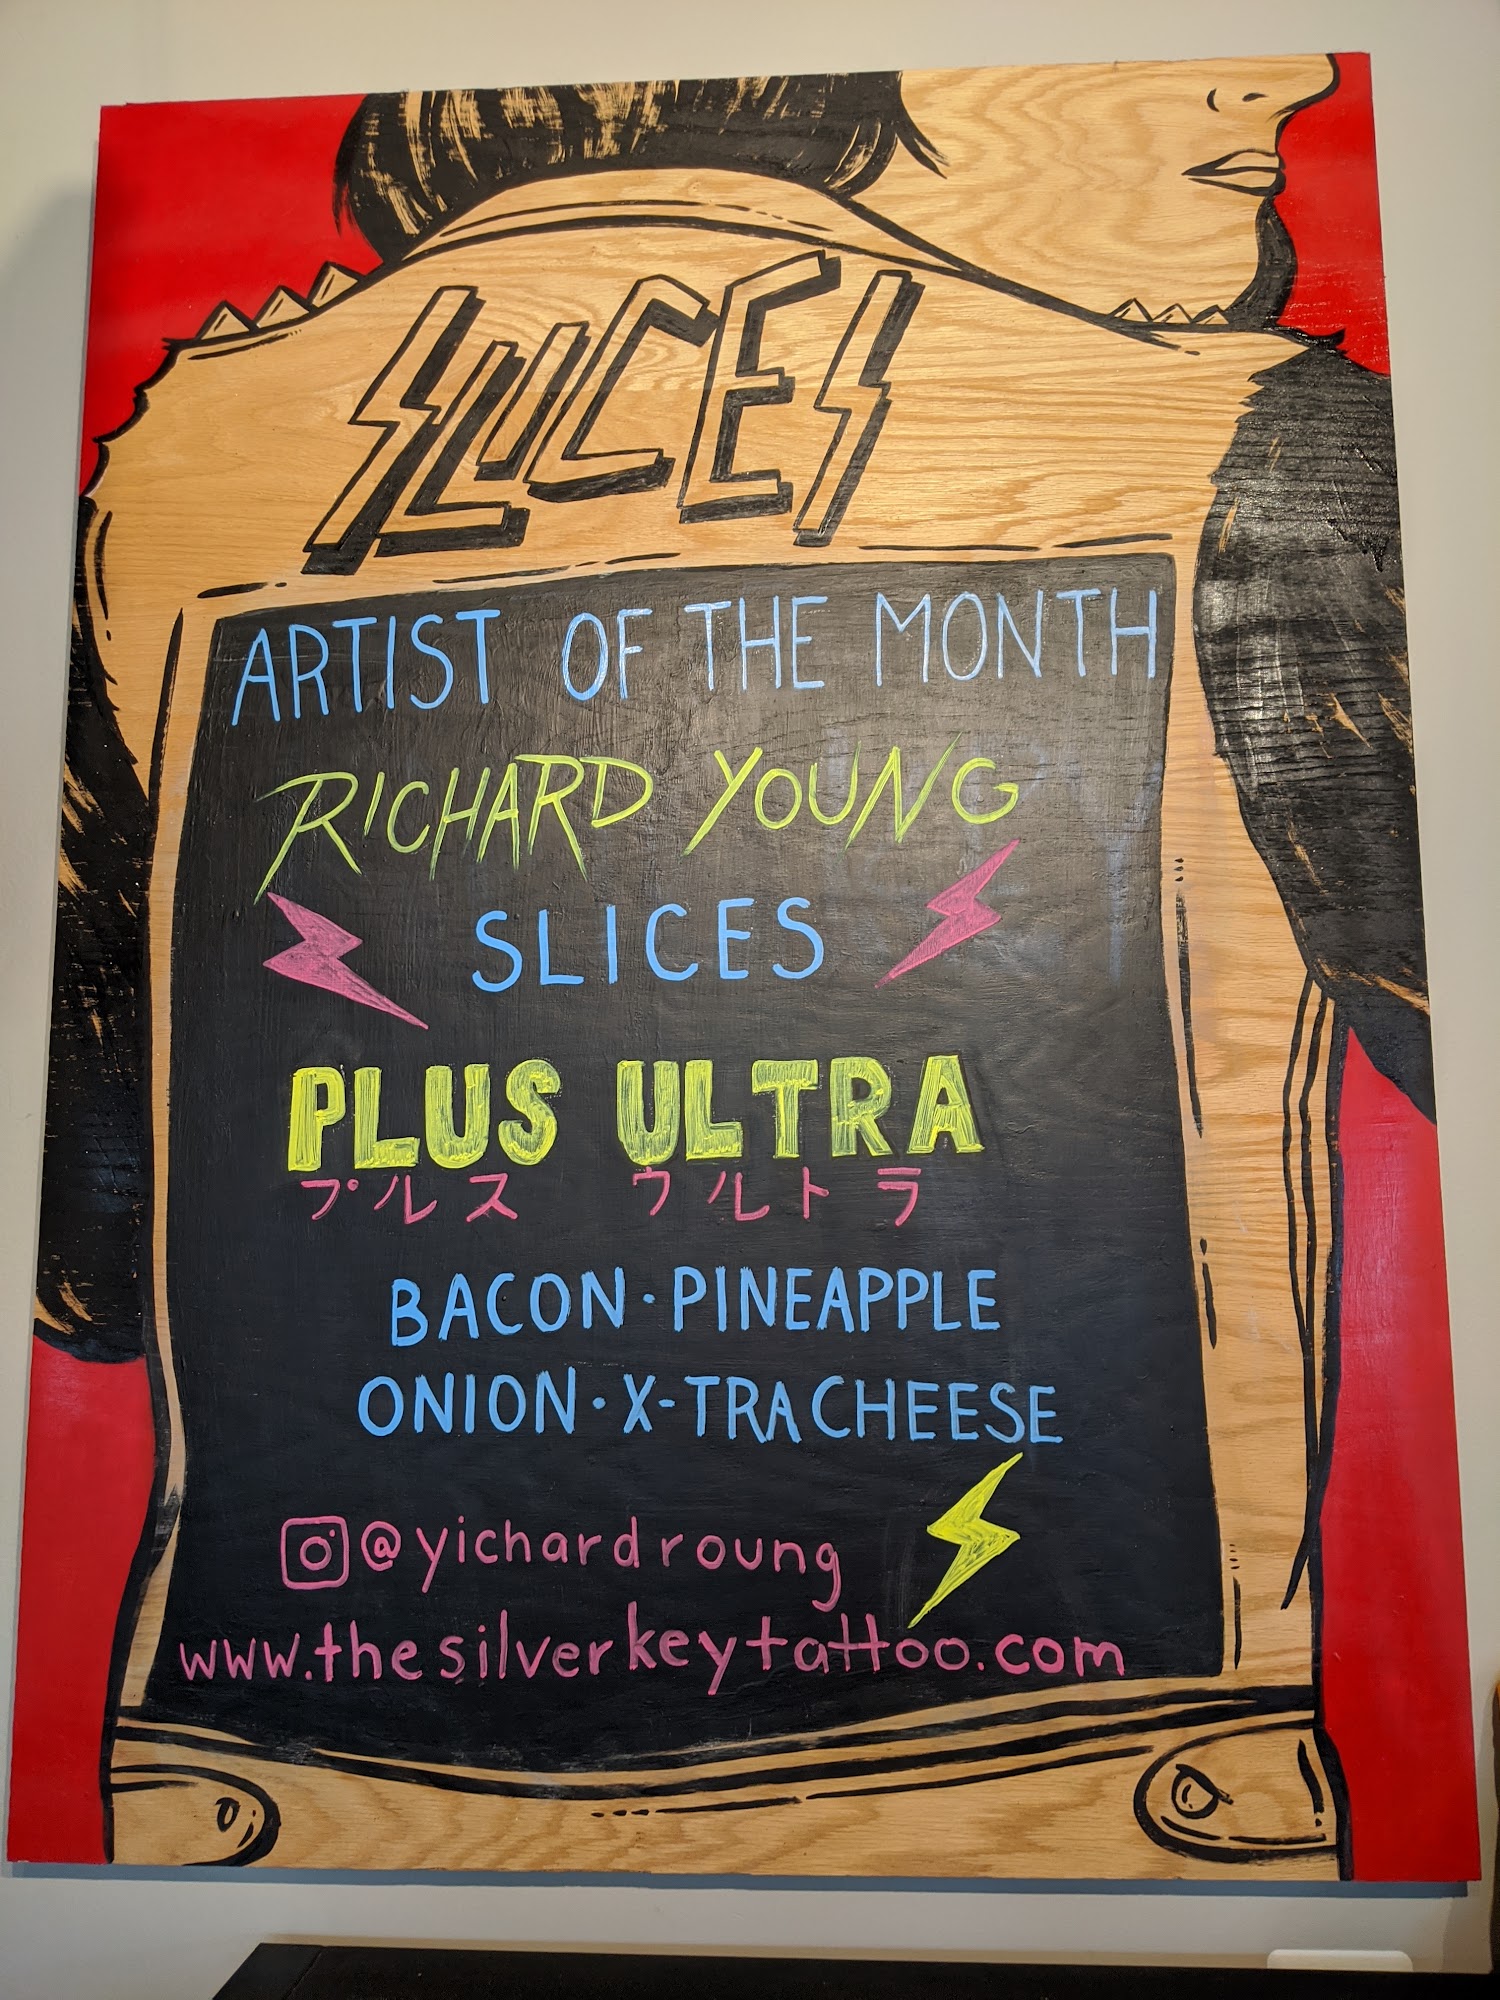 SLICES
ARTIST OF THE MONTH
RICHARD YOUNG
SLICES
PLUS ULTRA
プルス ウルトラ
BACON · PINEAPPLE
ONION · X-TRA CHEESE
@yichardroung
www.thesilverkeytattoo.com